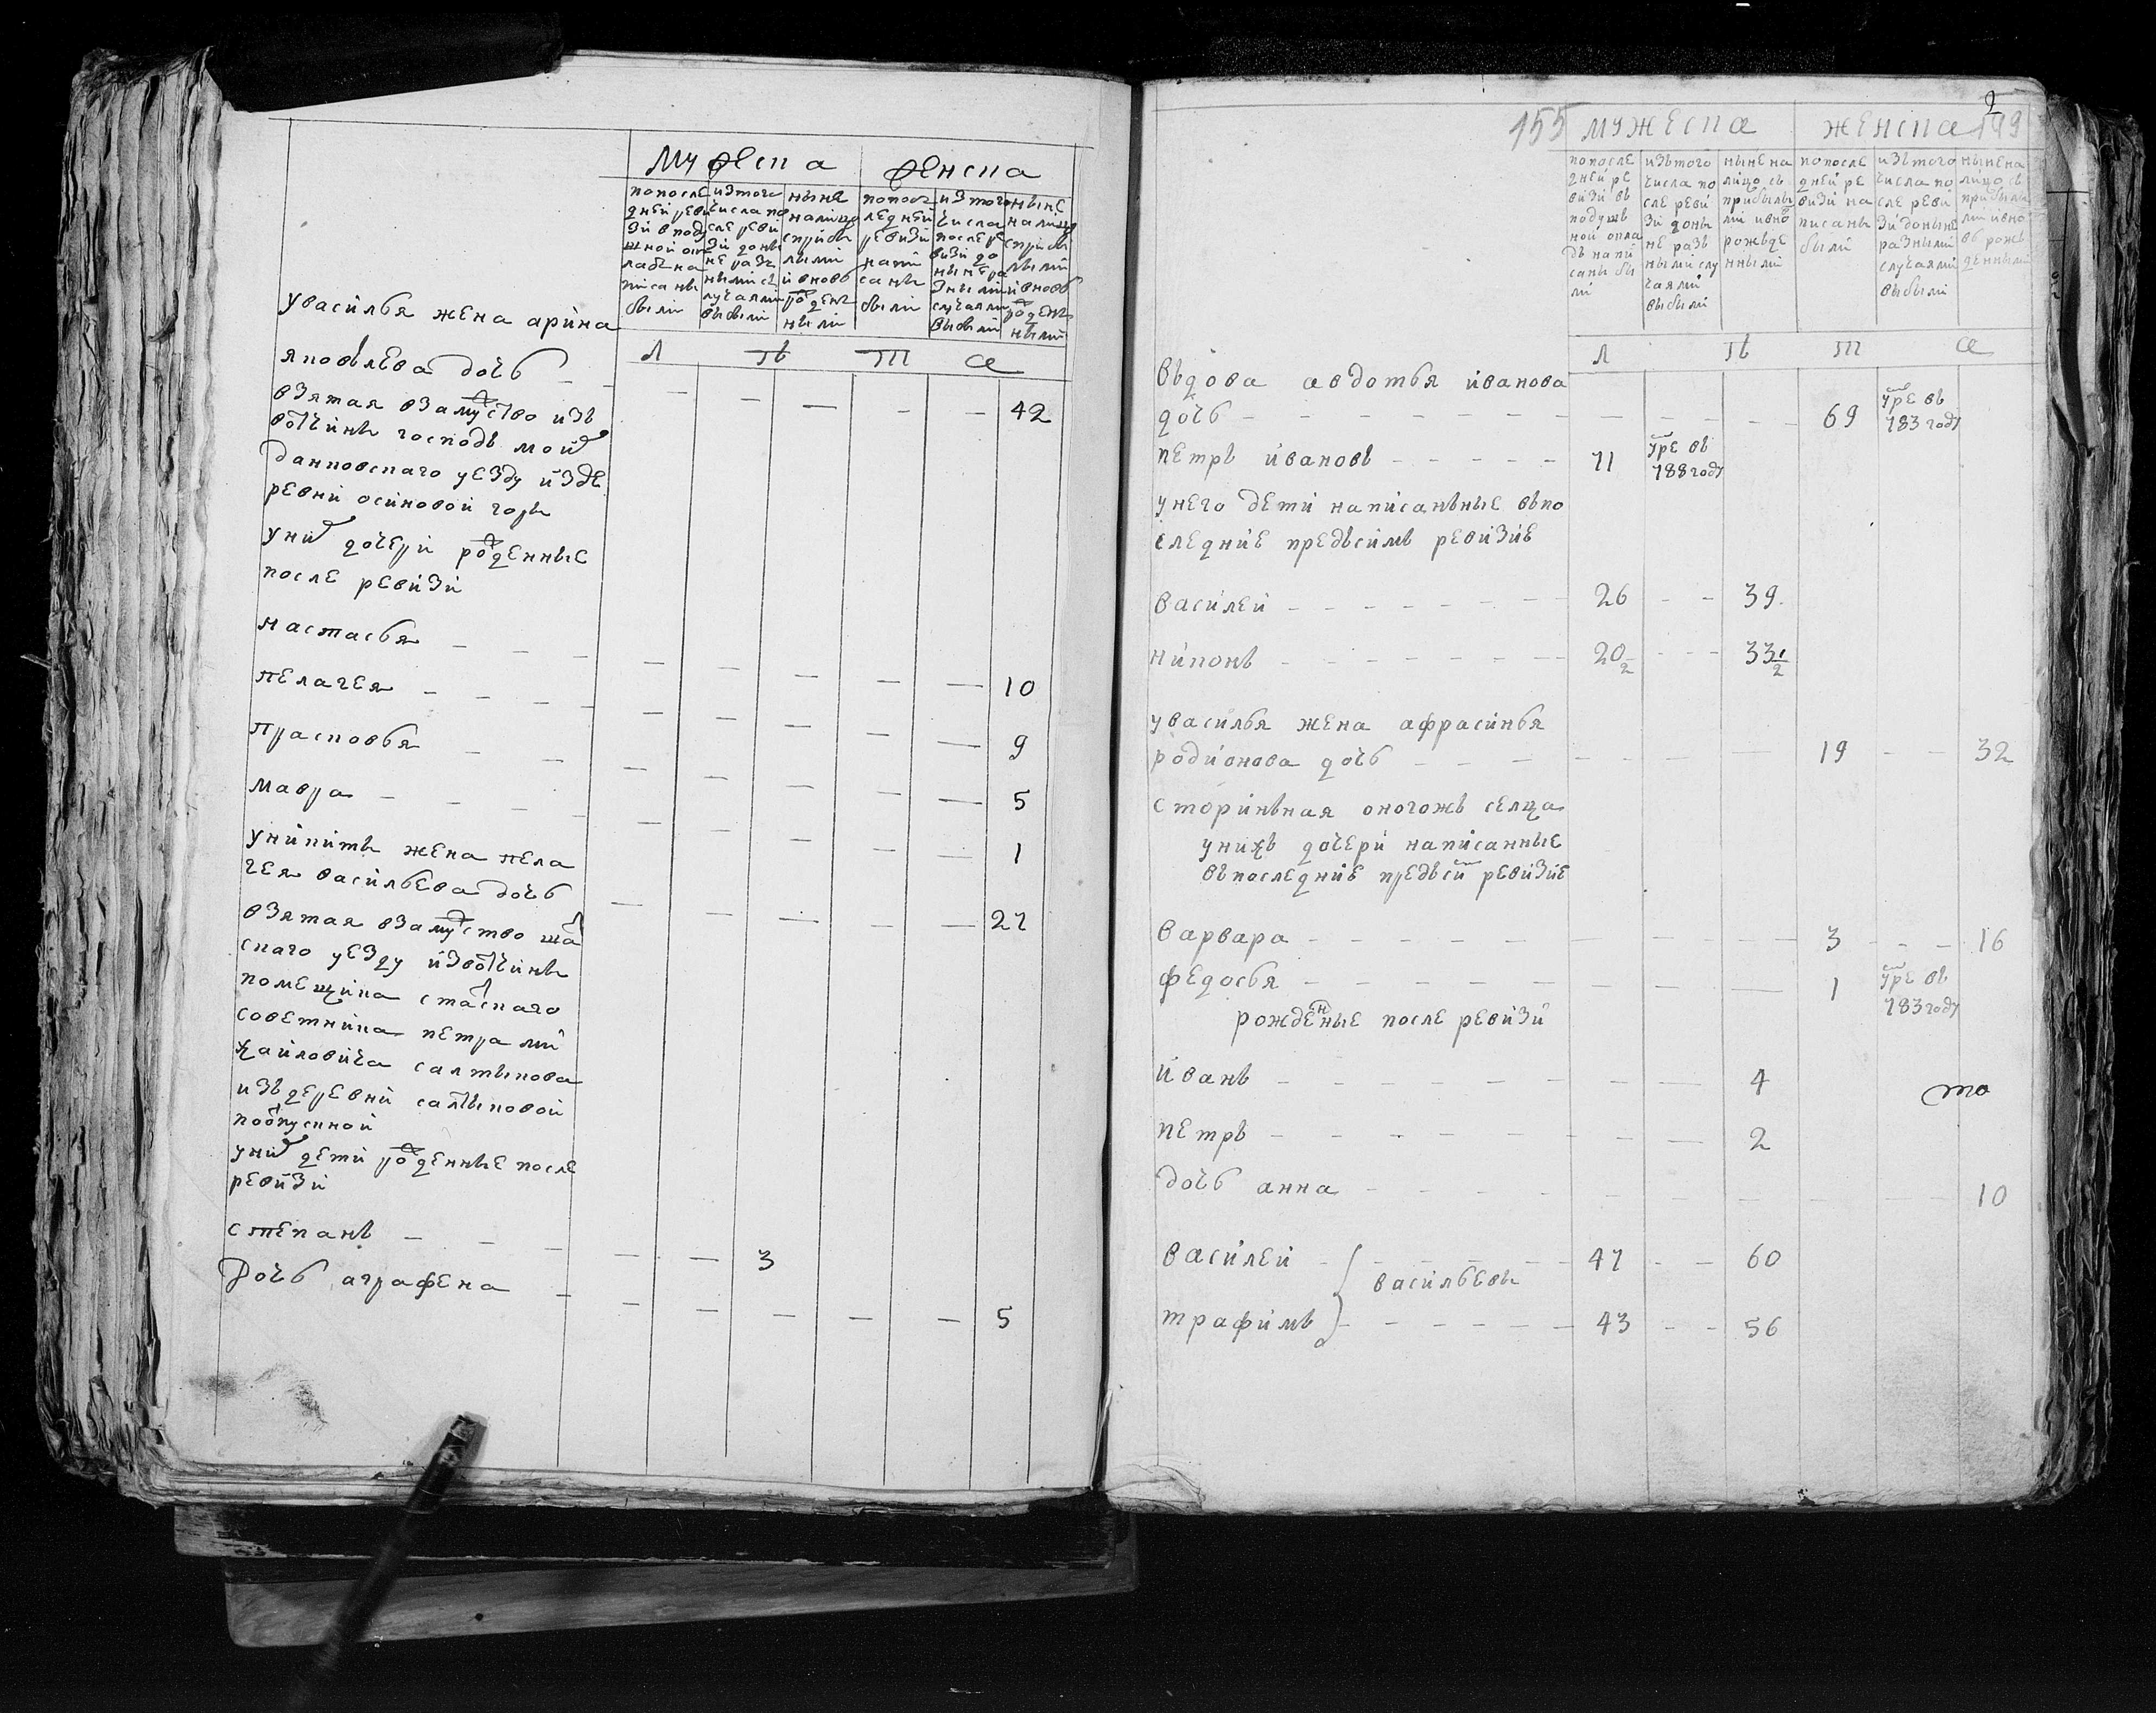 мужеска
женска
по после
дней реви
зи в поду
шной ок
ладъ на
писаны
были
из того
числа по
сле реви
зи до ны
не разъ
ными с
лучаями
выбыли
ныне
на лицо
с прибы
лыми
и вновь
рожден
ными
по посл
ледней
ревизи
напи
саны
были
из того
числа
после ре
визи до
ныне ра
зными
случаями
выбыли
ныне
на лицо
с прибы
лыми
и вновь
рожден
ными
л ѣ т а
у василья жена арина
яковлева дочь
42
взятая в замужство изъ
вотчины господъ мой
данковскаго уезду из де
ревни осиновой горы
у них дочери рожденные
после ревизи
настасья 10
пелагея 9
прасковья 5
мавра 1
у никиты жена пела
гея васильева дочь
27
взятая в замужство ша
скаго уезду из вотчины
помещика статскаго
советника петра ми
хайловича салтыкова
изъ деревни салтыковой
по отпускной
у них дети рожденные после
ревизи
степанъ 3
дочь аграфена 5
155 мужеска женска 149
2
по после
дней ре
визи въ
подуш
ной окла
дъ напи
саны бы
ли
изъ того
числа по
сле реви
зи до ны
не разъ
ными слу
чаями
выбыли
ныне на
лицо съ
прибылы
ми и вно
рожьде
нными
по после
дней ре
визи на
писаны
были
изъ того
числа по
сле реви
зи до ныне
разными
случаями
выбыли
ныне на
лицо съ
прибылы
ми и вно
въ рожь
денными
л ѣ т а
въдова авдотья иванова
дочь 69 умре въ 783 году
петръ ивановъ 71 умре въ 788 году
у него дети написанъные въ по
следние предъ симъ ревизие
василей 26 39
никонъ 20 1/2 33 1/2
у василья жена афрасинья
родионова дочь 19 32
сторинъная оного жъ селца
у нихъ дочери написанные
въ последние предъ сим ревизие
варвара 3 16
федосья 1 умре въ 783 году
рожденные после ревизи
иванъ 4
то
петръ 2
дочь анна 10
василей 47 60
васильевы
трафимъ 43 56